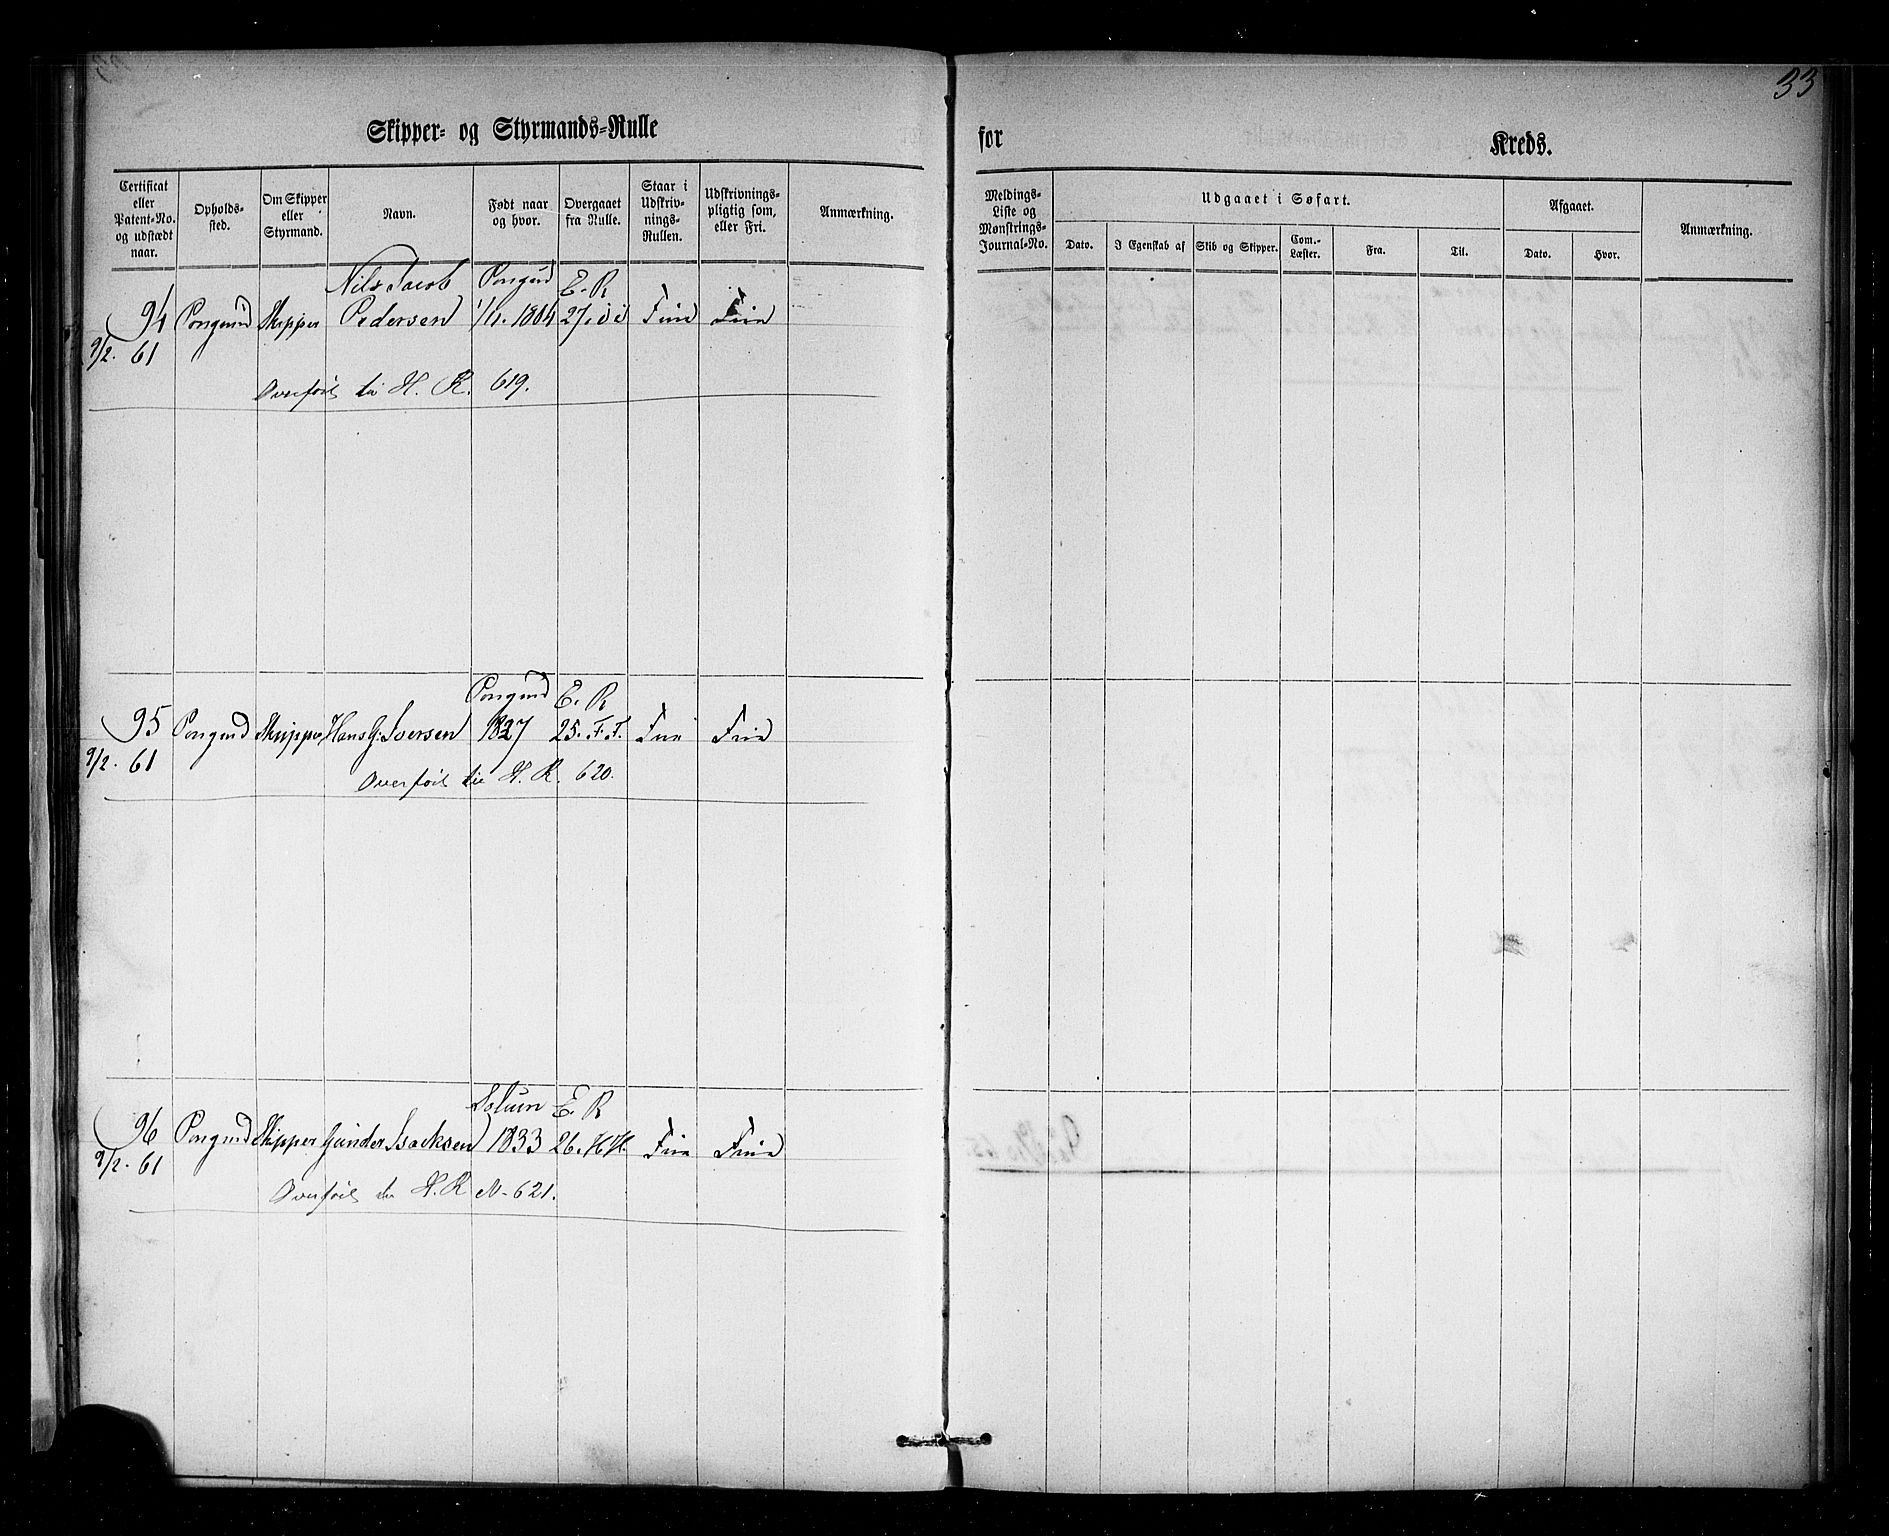 33
Skipper- og Styrmands-Rulle
for
Kreds.
Certificat eller Patent-No. og udstædt naar.
Opholds-sted.
Om Skipper eller Styrmand.
Navn.
Født naar og hvor.
Overgaaet fra Rulle.
Staar i Udskriv-nings-Rullen.
Udskrivnings-pligtig som, eller Fri.
Anmærkning.
Meldings-Liste og Mønstrings-Journal-No.
Udgaaet i Søfart.
Dato.
I Egenskab af
Skib og Skipper.
Com.-Læster.
Fra.
Til.
Afgaaet.
Dato.
Hvor.
Anmærkning.
Nils Jacob Porsgrund E. R
94 Porsgrund Skipper Pedersen 1804 27 Frie Frie
9/2. 61
Overført til H. R. 619.
Porsgrund E. R
95 Porsgrund Skipper Hans G. Iversen 1827 25. F.F. Frie Frie
9/2. 61
Overført til H. R. 620.
Solum E. R
96 Porsgrund Skipper Gunder Isacksen 1833 26. H.H. Frie Frie
9/2. 61
Overført til H. R N- 621.